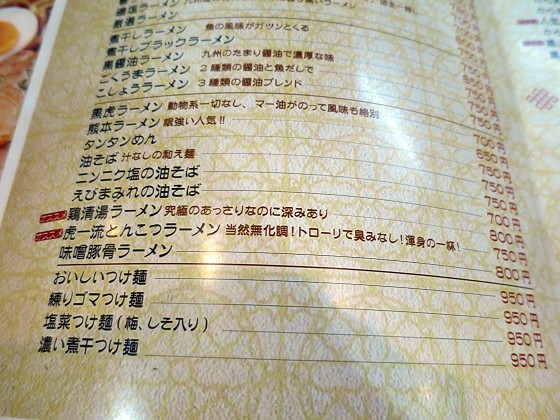 厳選ラーメン
煮干しラーメン 魚の風味がガツンとくる
煮干しブラックラーメン
黒醤油ラーメン 九州のたまり醤油で濃厚な味
こくうまラーメン 2種類の醤油と魚だしで
こしょうラーメン 3種類の醤油ブレンド 750円
黒虎ラーメン 動物系一切なし、マー油がのって風味も絶別 750円
熊本ラーメン 根強い人気!! 750円
タンタンめん 700円
油そば 汁なしの和え麺 650円
ニンニク塩の油そば 750円
えびまみれの油そば 750円
オススメ 鶏清湯ラーメン 究極のあっさりなのに深みあり 700円
オススメ 虎一流とんこつラーメン 当然無化調!トローリで臭みなし!渾身の一杯! 800円
味噌豚骨ラーメン 750円
800円
おいしいつけ麺 950円
練りゴマつけ麺 950円
塩菜つけ麺(梅、しそ入り) 950円
濃い煮干つけ麺 950円